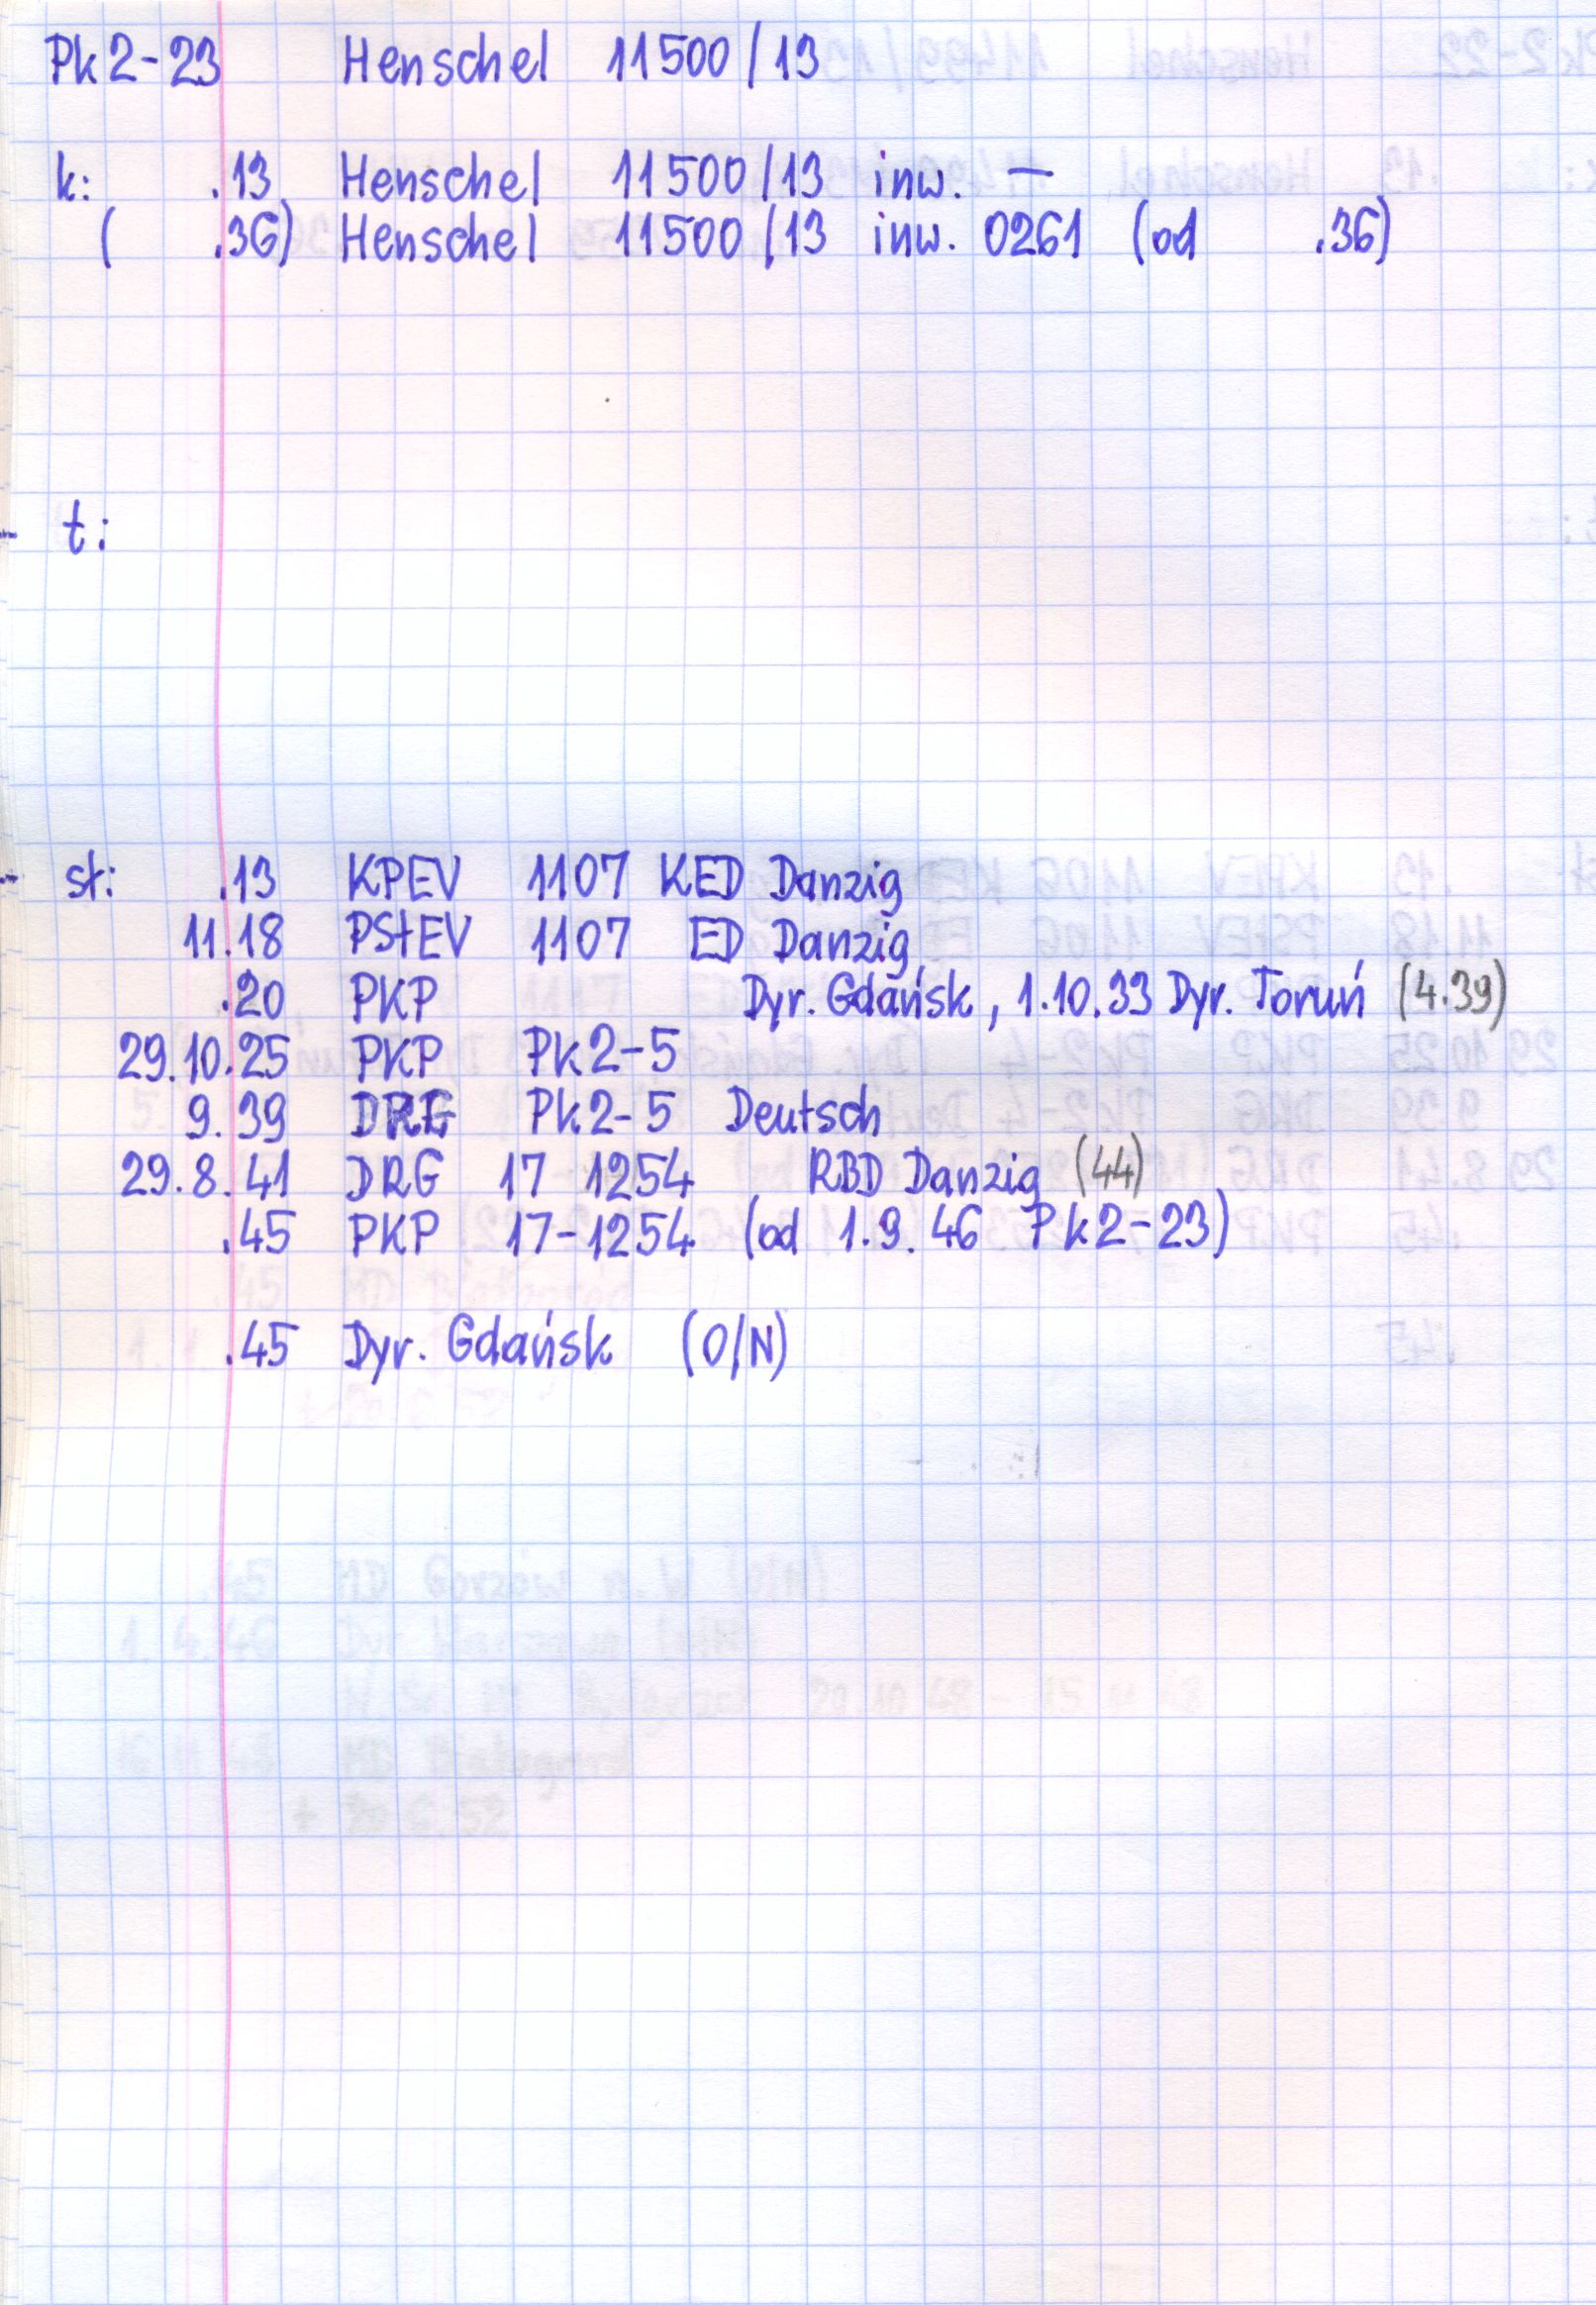 Pk2-23 Henschel 11500/13
k: .13 Henschel 11500/13 inw. —
( .36) Henschel 11500/13 inw. 0261 (od .36)
t:
st: .13 KPEV 1107 KED Danzig
11.18 PStEV 1107 ED Danzig
.20 PKP Dyr. Gdańsk, 1.10.33 Dyr. Toruń (4.39)
29.10.25 PKP Pk2-5
9.39 DRG Pk2-5 Deutsch
29.8.41 DRG 17 1254 RBD Danzig (44)
.45 PKP 17-1254 (od 1.9.46 Pk2-23)
.45 Dyr. Gdańsk (O/N)